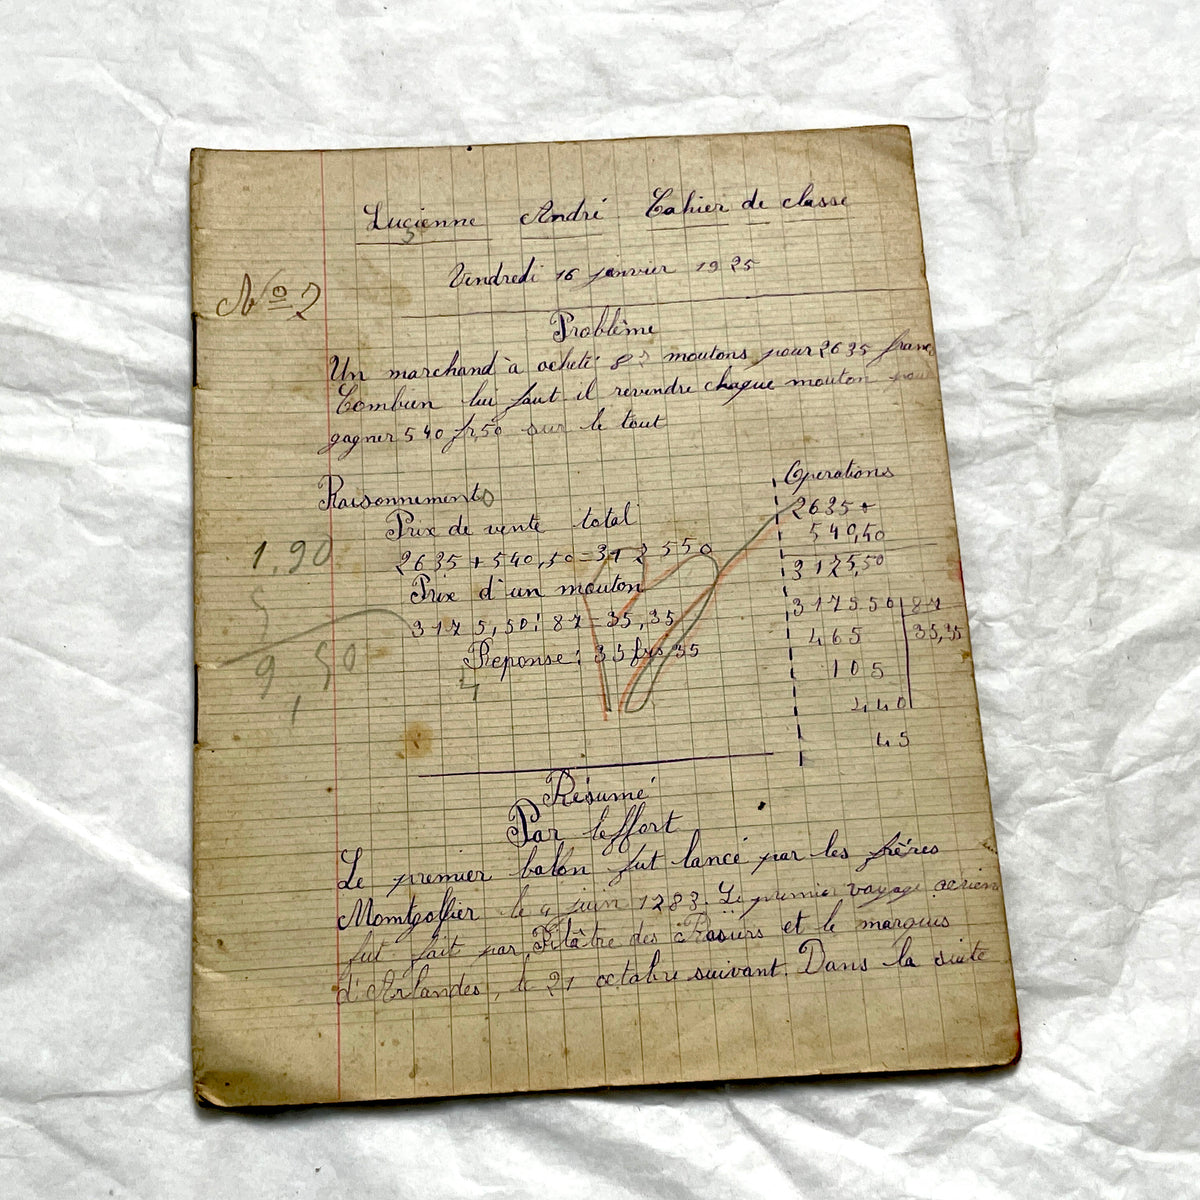 Lucienne André Cahier de classe
Vendredi 16 janvier 1925
No 2
Problème
Un marchand à acheté 87 moutons pour 2635 francs
Combien lui faut il revendre chaque mouton pour
gagner 540 fr,50 sur le tout
Raisonnements
Prix de vente total
2635 + 540,50 = 3172550
Prix d'un mouton
3175,50 : 87 = 35,35
Reponse : 35 frs 35
1,90
5
9,50
1
4
Operations
2635 +
540,50
3175,50
317550 87
465 35,35
105
440
45
Résumé
Par l'effort
Le premier balon fut lancé par les frères
Momtgolfier le 4 juin 1783. Le premier voyage aerien
fut fait par Pilâtre des Rosiers et le marquis
d'Arlandes, le 21 octobre suivant. Dans la suite